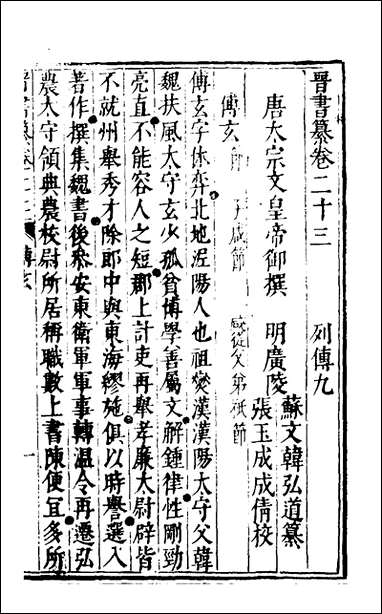 晉書纂卷二十三　列傳九
唐太宗文皇帝御撰　明廣陵蘇文韓弘道纂
張玉成成倩校
傅玄節　子咸節　咸從父弟祇節
傅玄字休奕北地泥陽人也祖燮漢漢陽太守父韓
魏扶風太守玄少孤貧博學善屬文解鍾律性剛勁
亮直不能容人之短郡上計吏再舉孝廉太尉辟皆
不就州舉秀才除郎中與東海繆施俱以時譽選入
著作撰集魏書後參安東衛軍軍事轉溫令再遷弘
農太守領典農校尉所居稱職數上書陳便宜多所
晉書纂卷二十三　傅玄　一